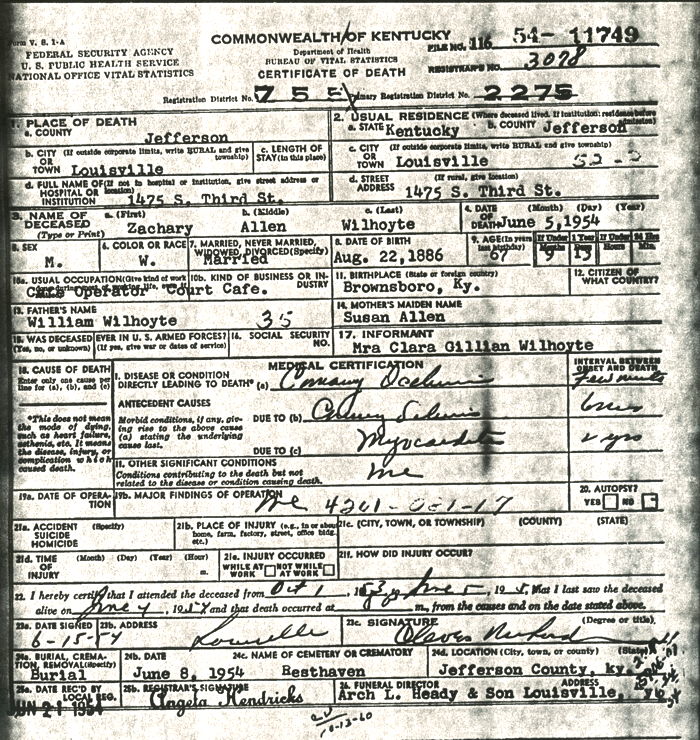 Form V. S. 1-A
COMMONWEALTH OF KENTUCKY
FEDERAL SECURITY AGENCY
U. S. PUBLIC HEALTH SERVICE
NATIONAL OFFICE VITAL STATISTICS
Department of Health
BUREAU OF VITAL STATISTICS
CERTIFICATE OF DEATH
FILE NO. 116 54- 11749
REGISTRAR'S NO. 3078
Registration District No. 755 Primary Registration District No. 2275
1. PLACE OF DEATH
a. COUNTY Jefferson
2. USUAL RESIDENCE (Where deceased lived. If institution: residence before admission)
a. STATE Kentucky b. COUNTY Jefferson
b. CITY (If outside corporate limits, write RURAL and give township)
OR
TOWN Louisville
c. LENGTH OF STAY (in this place)
c. CITY (If outside corporate limits, write RURAL and give township)
OR
TOWN Louisville
d. FULL NAME OF (If not in hospital or institution, give street address or location)
HOSPITAL OR
INSTITUTION 1475 S. Third St.
d. STREET (If rural, give location)
ADDRESS 1475 S. Third St.
3. NAME OF DECEASED (Type or Print)
a. (First) b. (Middle) c. (Last)
Zachary Allen Wilhoyte
4. DATE OF DEATH (Month) (Day) (Year)
June 5, 1954
5. SEX
M.
6. COLOR OR RACE
W.
7. MARRIED, NEVER MARRIED, WIDOWED, DIVORCED (Specify)
Married
8. DATE OF BIRTH
Aug. 22, 1886
9. AGE (In years last birthday) If Under 1 Year Months Days If Under 24 Hrs Hours Min.
67 9 13
10a. USUAL OCCUPATION (Give kind of work done during most of working life, even if
Cafe Operator
10b. KIND OF BUSINESS OR INDUSTRY
Court Cafe.
11. BIRTHPLACE (State or foreign country)
Brownsboro, Ky.
12. CITIZEN OF WHAT COUNTRY?
13. FATHER'S NAME
William Wilhoyte 35
14. MOTHER'S MAIDEN NAME
Susan Allen
15. WAS DECEASED EVER IN U. S. ARMED FORCES?
(Yes, no, or unknown) (If yes, give war or dates of service)
16. SOCIAL SECURITY NO.
17. INFORMANT
Mra Clara Gillian Wilhoyte
18. CAUSE OF DEATH
Enter only one cause per line for (a), (b), and (c)
MEDICAL CERTIFICATION
INTERVAL BETWEEN ONSET AND DEATH
I. DISEASE OR CONDITION
DIRECTLY LEADING TO DEATH* (a)
*This does not mean the mode of dying, such as heart failure, asthenia, etc. It means the disease, injury, or complication which caused death.
ANTECEDENT CAUSES
Morbid conditions, if any, giving rise to the above cause (a) stating the underlying cause last.
DUE TO (b)
DUE TO (c) Myocarditis 2 yrs
II. OTHER SIGNIFICANT CONDITIONS
Conditions contributing to the death but not related to the disease or condition causing death.
19a. DATE OF OPERATION
19b. MAJOR FINDINGS OF OPERATION
20. AUTOPSY?
YES NO
21a. ACCIDENT SUICIDE HOMICIDE (Specify)
21b. PLACE OF INJURY (e.g., in or about home, farm, factory, street, office bldg. etc.)
21c. (CITY, TOWN, OR TOWNSHIP) (COUNTY) (STATE)
21d. TIME OF INJURY (Month) (Day) (Year) (Hour) m.
21e. INJURY OCCURRED
WHILE AT WORK NOT WHILE AT WORK
21f. HOW DID INJURY OCCUR?
22. I hereby certify that I attended the deceased from Oct 1, 1953, to June 5, 195, that I last saw the deceased
alive on June 4, 1954 and that death occurred at m., from the causes and on the date stated above.
23a. DATE SIGNED 23b. ADDRESS 23c. SIGNATURE (Degree or title)
6-15-54 Louisville
24a. BURIAL, CREMATION, REMOVAL (Specify)
Burial
24b. DATE
June 8, 1954
24c. NAME OF CEMETERY OR CREMATORY
Resthaven
24d. LOCATION (City, town, or county) (State)
Jefferson County, ky
25a. DATE REC'D BY LOCAL REG.
JUN 21 1954
25b. REGISTRAR'S SIGNATURE
Angela Hendricks
26. FUNERAL DIRECTOR ADDRESS
Arch L. Heady & Son Louisville,
10-13-60